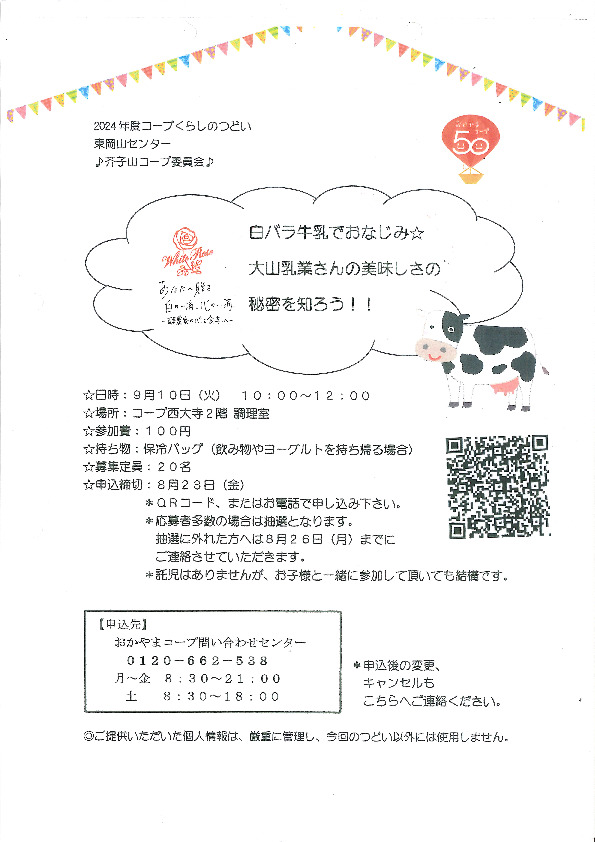 2024年度コープくらしのつどい
東岡山センター
♪芥子山コープ委員会♪
50
白バラ牛乳でおなじみ☆
大山乳業さんの美味しさの
秘密を知ろう！！
White Rose
☆日時：９月１０日（火）　１０：００～１２：００
☆場所：コープ西大寺２階 調理室
☆参加費：１００円
☆持ち物：保冷バッグ（飲み物やヨーグルトを持ち帰る場合）
☆募集定員：２０名
☆申込締切：８月２３日（金）
＊ＱＲコード、またはお電話で申し込み下さい。
＊応募者多数の場合は抽選となります。
抽選に外れた方へは８月２６日（月）までに
ご連絡させていただきます。
＊託児はありませんが、お子様と一緒に参加して頂いても結構です。
【申込先】
おかやまコープ問い合わせセンター
０１２０－６６２－５３８
月～金　８：３０～２１：００
土　８：３０～１８：００
＊申込後の変更、
キャンセルも
こちらへご連絡ください。
◎ご提供いただいた個人情報は、厳重に管理し、今回のつどい以外には使用しません。